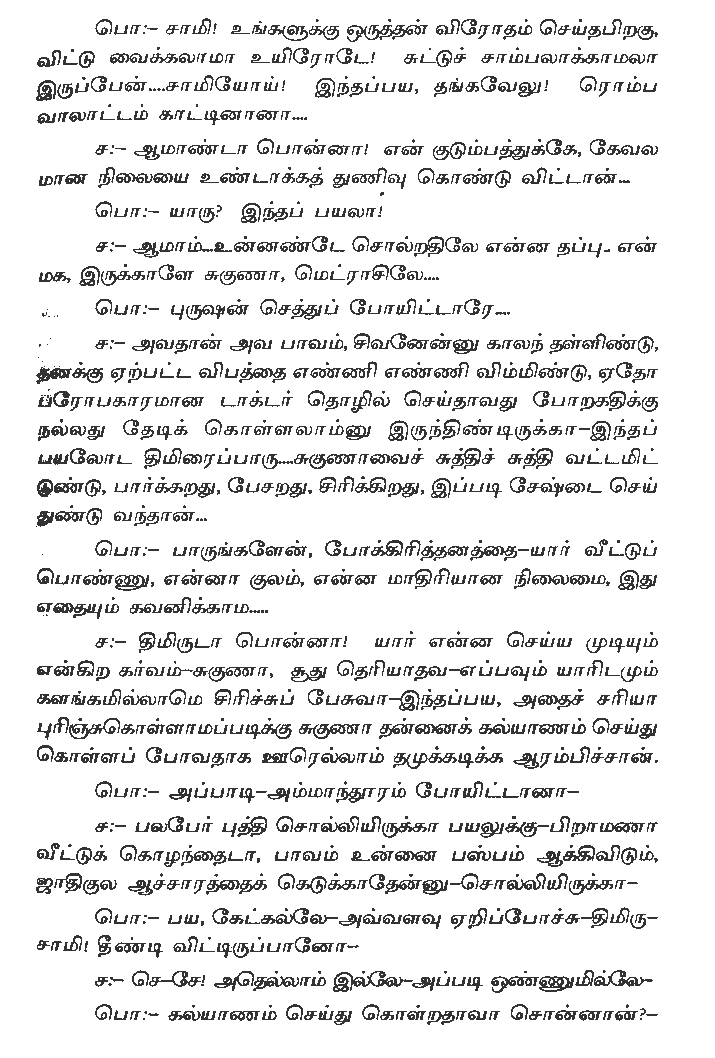 பொ:- சாமி! உங்களுக்கு ஒருத்தன் விரோதம் செய்தபிறகு,
விட்டு வைக்கலாமா உயிரோடே! சுட்டுச் சாம்பலாக்காமலா
இருப்பேன்....சாமியோய்! இந்தப்பய, தங்கவேலு! ரொம்ப
வாலாட்டம் காட்டினானா....
ச:- ஆமாண்டா பொன்னா! என் குடும்பத்துக்கே, கேவல
மான நிலையை உண்டாக்கத் துணிவு கொண்டு விட்டான்...
பொ:- யாரு? இந்தப் பயலா!
ச:- ஆமாம்...உன்னண்டே சொல்றதிலே என்ன தப்பு.. என்
மக, இருக்காளே சுகுணா, மெட்ராசிலே....
பொ:- புருஷன் செத்துப் போயிட்டாரே....
ச:- அவதான் அவ பாவம், சிவனேன்னு காலந் தள்ளிண்டு,
தனக்கு ஏற்பட்ட விபத்தை எண்ணி எண்ணி விம்மிண்டு, ஏதோ
பரோபகாரமான டாக்டர் தொழில் செய்தாவது போறகதிக்கு
நல்லது தேடிக் கொள்ளலாம்னு இருந்திண்டிருக்கா-இந்தப்
பயலோட திமிரைப்பாரு....சுகுணாவைச் சுத்திச் சுத்தி வட்டமிட்
டுண்டு, பார்க்கறது, பேசறது, சிரிக்கிறது, இப்படி சேஷ்டை செய்
துண்டு வந்தான்...
பொ:- பாருங்களேன், போக்கிரித்தனத்தை-யார் வீட்டுப்
பொண்ணு, என்னா குலம், என்ன மாதிரியான நிலைமை, இது
எதையும் கவனிக்காம.....
ச:- திமிருடா பொன்னா! யார் என்ன செய்ய முடியும்
என்கிற கர்வம்-சுகுணா, சூது தெரியாதவ-எப்பவும் யாரிடமும்
களங்கமில்லாமெ சிரிச்சுப் பேசுவா-இந்தப்பய, அதைச் சரியா
புரிஞ்சுகொள்ளாமப்படிக்கு சுகுணா தன்னைக் கல்யாணம் செய்து
கொள்ளப் போவதாக ஊரெல்லாம் தமுக்கடிக்க ஆரம்பிச்சான்.
பொ:- அப்பாடி-அம்மாந்தூரம் போயிட்டானா-
ச:- பலபேர் புத்தி சொல்லியிருக்கா பயலுக்கு-பிறாமணா
வீட்டுக் கொழந்தைடா, பாவம் உன்னை பஸ்பம் ஆக்கிவிடும்,
ஜாதிகுல ஆச்சாரத்தைக் கெடுக்காதேன்னு-சொல்லியிருக்கா-
பொ:- பய, கேட்கல்லே-அவ்வளவு ஏறிப்போச்சு-திமிரு-
சாமி! தீண்டி விட்டிருப்பானோ-
ச:- செ-சே! அதெல்லாம் இல்லே-அப்படி ஒண்ணுமில்லே-
பொ:- கல்யாணம் செய்து கொள்றதாவா சொன்னான்?-